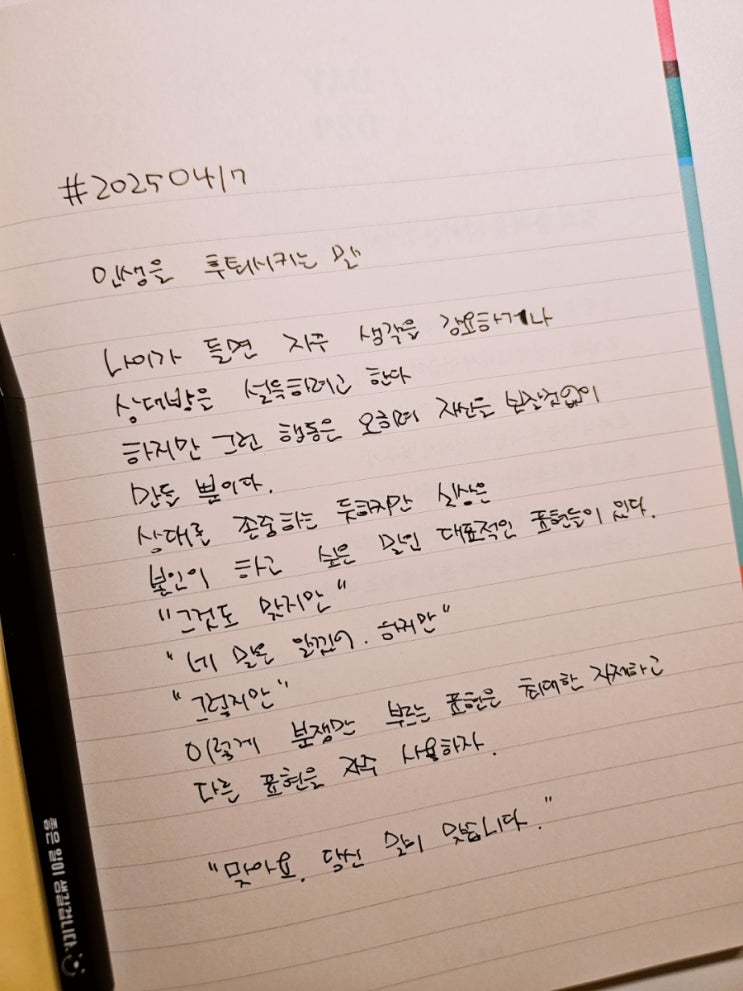 #20250417
인생을 후퇴시키는 말
나이가 들면 자꾸 생각을 강요하거나
상대방을 설득하려고 한다
하지만 그런 행동은 오히려 자신을 보잘것없이
만들 뿐이다.
상대를 존중하는 듯하지만 실상은
본인이 하고 싶은 말인 대표적인 표현들이 있다.
"그것도 맞지만"
"네 말은 알겠어. 하지만"
"그렇지만"
이렇게 분쟁만 부르는 표현은 최대한 자제하고
다른 표현을 자주 사용하자.
"맞아요. 당신 말이 맞습니다."
좋은 일이 생길겁니다.